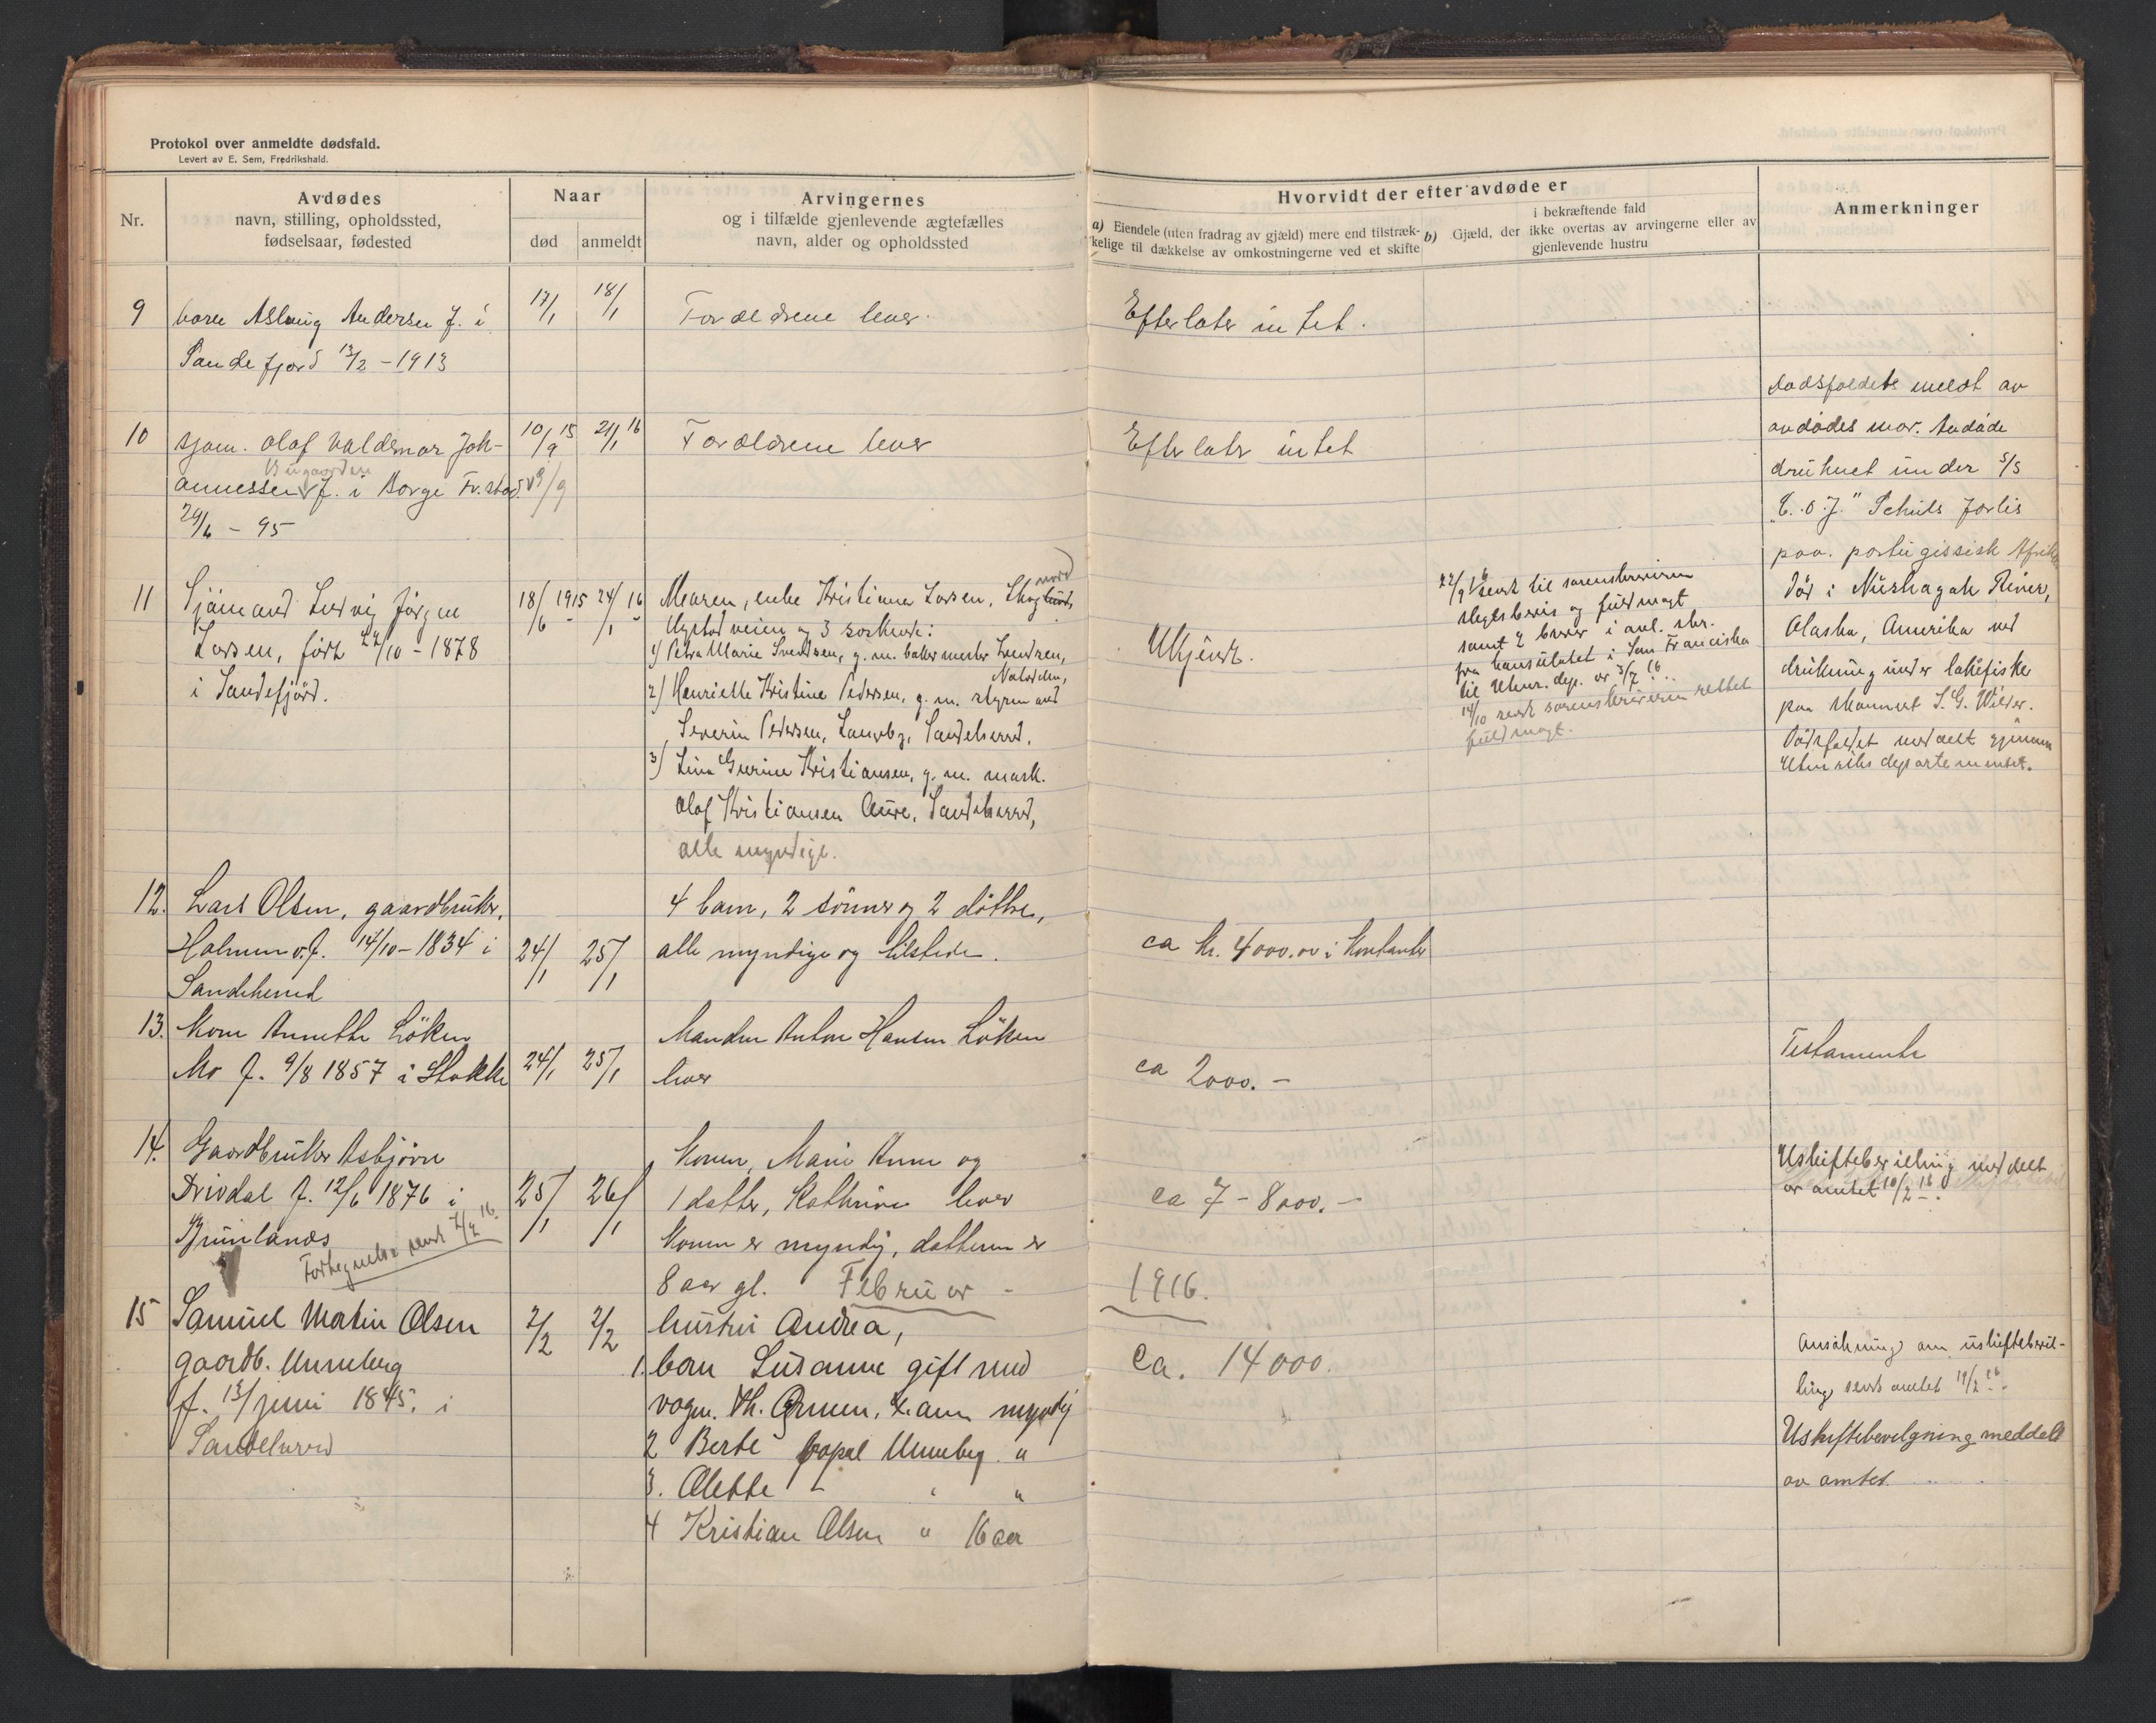 Protokol over anmeldte dødsfald.
Levert av E. Sem, Fredrikshald.
Nr.
Avdødes
navn, stilling, opholdssted,
fødselsaar, fødested
Naar
død
anmeldt
Arvingernes
og i tilfælde gjenlevende ægtefælles
navn, alder og opholdssted
Hvorvidt der efter avdøde er
a) Eiendele (uten fradrag av gjæld) mere end tilstræk-
kelige til dækkelse av omkostningerne ved et skifte
b) Gjæld, der i bekræftende fald
ikke overtas av arvingerne eller av
gjenlevende hustru
Anmerkninger
9 barn Aslaug Andersen f. i
Sandefjord 13/2 - 1913
17/1 18/1
Forældrene lever.
Efterlater intet.
10 sjøm. Olaf Valdemar Joh-
Bugaarden
annessen f. i Borge Fr.stad
29/6 - 95
10/9 15 21/1 16
19/9
Forældrene lever
Efterlater intet
dødsfaldet meldt av
avdødes mor. Avdøde
druknet under s/s
"C. o. J." Schuls forlis
paa portugissisk Afrika
11 Sjömand Ludvig Jørgen
Larsen, født 22/10 - 1878
i Sandefjord.
18/6 1915 24/1 16
Moren, enke Kristiane Larsen, Skoglund,
nord
Nystadveien og 3 søskende:
1) Petra Marie Svendsen, g. m. bakermester Svendsen,
Notodden,
2) Henriette Kristine Pedersen, g. m. styrmand
Severin Pedersen, Landeby, Sandeherred,
3) Lina Gurine Kristiansen, g. m. mask.
Olaf Kristiansen Aure, Sandeherred,
alle myndige.
Ukjendt.
22/9 16 sendt til sorenskriveren
slegtsbevis og fuldmagt
samt 2 breve i anl. skr.
fra konsulatet i San Francisko
til Utenr. dep. av 3/7 16.
14/10 sendt sorenskriveren rettet
fuldmagt.
Död i Nushagak River,
Alaska, Amerika ved
drukning under laksefiske
paa skonnert S. G. Wilder.
Dödsfaldet meddelt gjennem
Utenriksdepartementet.
12. Lars Olsen, gaardbruker,
Holmen v. f. 14/10 - 1834 i
Sandeherred
24/1 25/1
4 barn, 2 sönner og 2 døttre,
alle myndige og tilstede.
ca kr. 4000.00 i kontanter
13. Kone Annette Löken
Mo f. 9/8 1857 i Stokke
24/1 25/1
Manden Anton Hansen Löken
lever
ca 2000. -
Testamente
14. Gaardbruker Asbjørn
Trivdal f. 12/6 1876 i
Brunlanes
Fortegnelse sendt 7/2 16.
25/1 26/1
Konen, Marie Anne og
1 datter, Kathrine lever
Konen er myndig, datteren er
8 aar gl.
ca 7 - 8000. -
Uskiftebevilling meddelt
av amtet 10/2 16.
Februar - 1916.
15 Samuel Martin Olsen
gaardb. Unneberg
f. 13/juni 1845. i
Sandeherred
2/2 2/2
hustru Andrea,
1. barn Susanne gift med
vogn. Th. Ormen, myndig
2 Berte Unneberg "
3. Olette " "
4 Kristian Olsen " 16 aar
Ca. 14000.
Ansøkning om uskiftebevil-
ling sendt amtet 19/2 16.
Uskiftebevilgning meddelt
av amtet